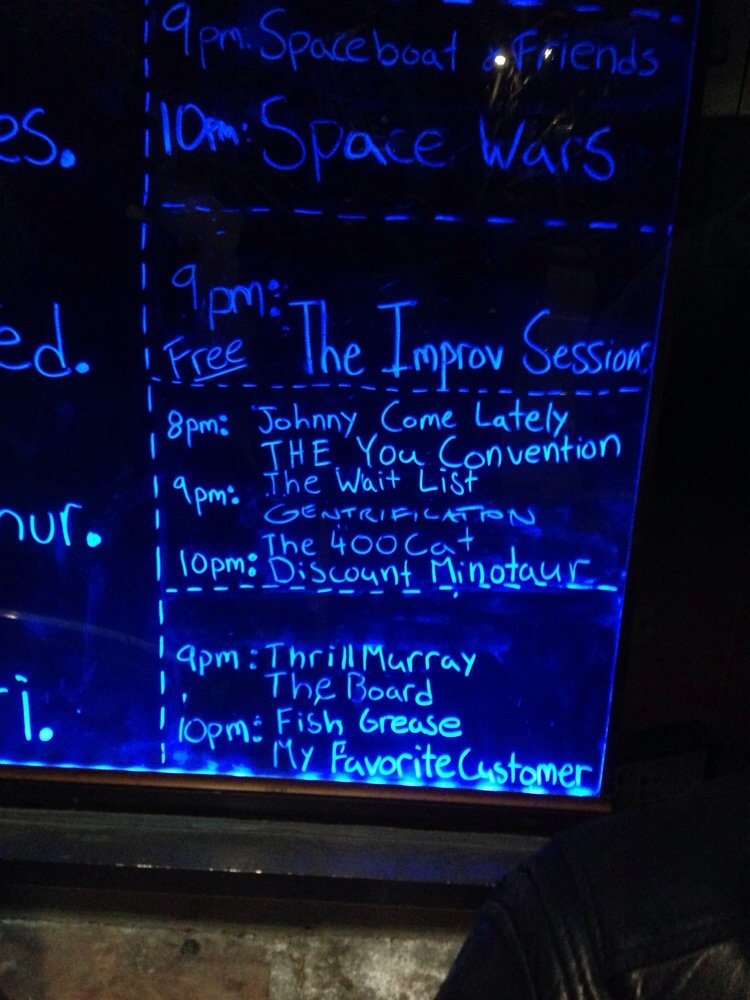 es.
9pm: Spaceboat & Friends
10pm: Space Wars
ed.
9pm:
Free The Improv Session
hur.
8pm: Johnny Come Lately
THE You Convention
9pm: The Wait List
GENTRIFICATION
The 400 Cat
10pm: Discount Minotaur
ri.
9pm: Thrill Murray
The Board
10pm: Fish Grease
My Favorite Customer